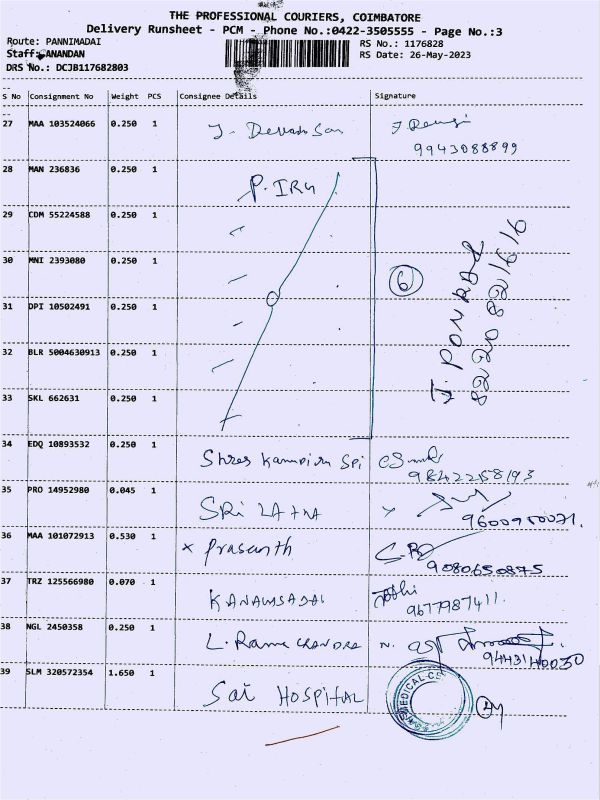 THE PROFESSIONAL COURIERS, COIMBATORE
Delivery Runsheet - PCM - Phone No.:0422-3505555 - Page No.:3
Route: PANNIMADAI
RS No.: 1176828
Staff: ANANDAN
RS Date: 26-May-2023
DRS No.: DCJB117682803
S No Consignment No Weight PCS Consignee Details Signature
27 MAA 103524066 0.250 1
9943088899
28 MAN 236836 0.250 1 P. IRU
29 CDM 55224588 0.250 1
30 MNI 2393080 0.250 1
6
31 DPI 10502491 0.250 1
32 BLR 5004630913 0.250 1
33 SKL 662631 0.250 1
J. PONRAJ
34 EDQ 10893532 0.250 1
9842258193
35 PRO 14952980 0.045 1 SRi LATHA
9600950071.
36 MAA 101072913 0.530 1 x Prasanth
9080650875
37 TRZ 125566980 0.070 1
9677987411.
38 NGL 2450358 0.250 1 L. Rama CHANDRA N.
9443140030
39 SLM 320572354 1.650 1 Sai HOSPITAL
MEDICAL